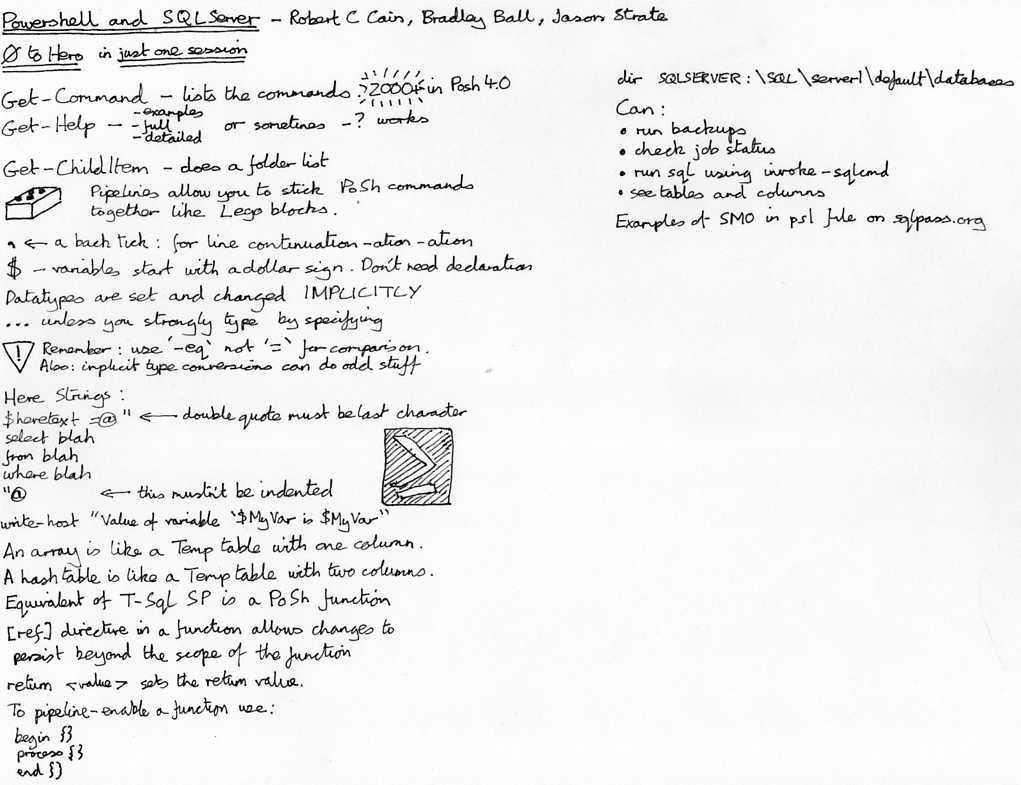 Powershell and SQLServer - Robert C Cain, Bradley Ball, Jason Strate
0 to Hero in just one session
Get-Command - lists the commands : 2000+ in Posh 4.0
Get-Help - -examples
-full
-detailed
or sometimes -? works
Get-ChildItem - does a folder list
Pipelines allow you to stick PoSh commands
together like Lego blocks.
` ← a back tick : for line continuation-ation-ation
$ - variables start with a dollar sign. Don't need declaration
Datatypes are set and changed IMPLICITLY
... unless you strongly type by specifying
! Remember : use '-eq' not '=' for comparison.
Also: implicit type conversions can do odd stuff
Here Strings :
$heretext =@" ← double quote must be last character
select blah
from blah
where blah
"@ ← this mustn't be indented
write-host "Value of variable `$MyVar is $MyVar"
An array is like a Temp table with one column.
A hash table is like a Temp table with two columns.
Equivalent of T-Sql SP is a PoSh function
[ref] directive in a function allows changes to
persist beyond the scope of the function
return <value> sets the return value.
To pipeline-enable a function use:
begin {}
process {}
end {}
dir SQLSERVER:\SQL\server1\default\databases
Can :
• run backups
• check job status
• run sql using invoke-sqlcmd
• see tables and columns
Examples of SMO in ps1 file on sqlpass.org